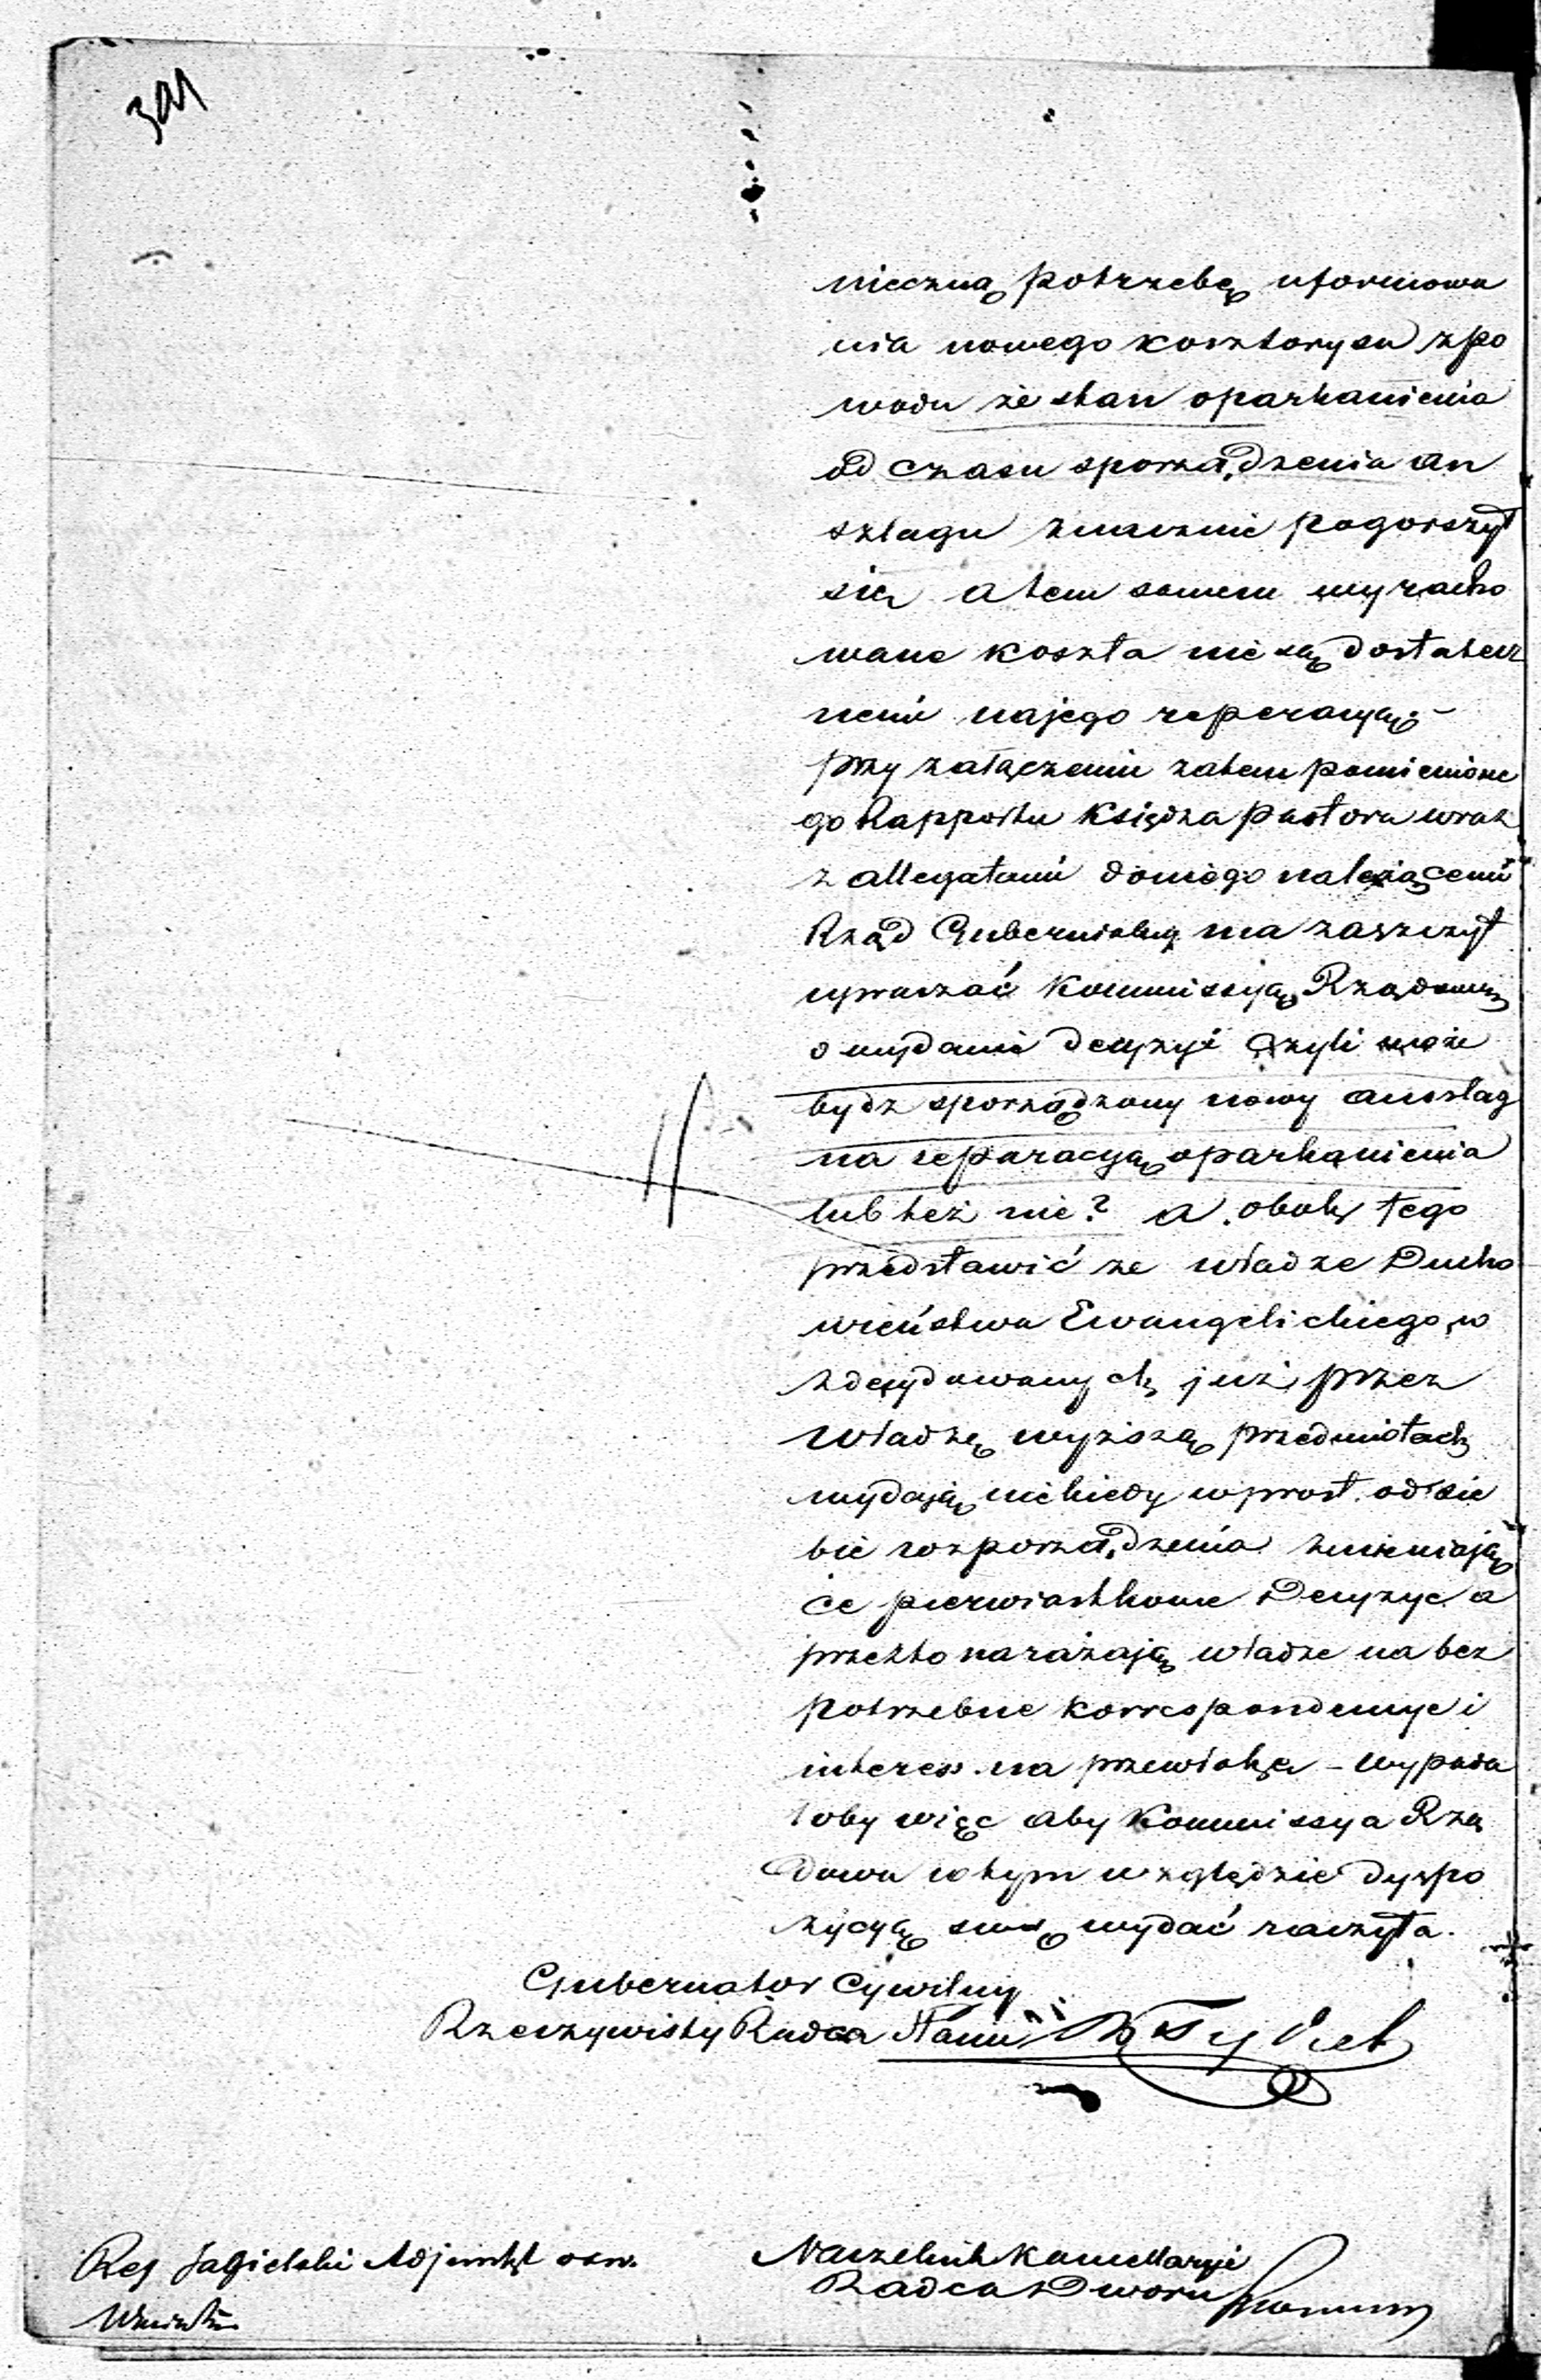 391
nieczną potrzebę uformowa
nia nowego kosztorysu z po
wodu że stan oparkanienia
od czasu sporządzenia an
szlagu znacznie pogorszył
się a tem samem wyracho
wane koszta nie są dostatecz
nemi na jego reperacyą; –
przy załączeniu zatem pomienione
go Rapportu Księdza Pastora wraz
z allegatami doniego należącemi
Rząd Gubernialny ma zaszczyt
upraszać Kommissyją Rządową
o wydanie decyzyi czyli może
bydz sporządzony nowy anszlag
na reparacyą oparkanienia
lub też nie? a obok tego
przedstawić że władze Ducho
wieństwa Ewangelickiego, w
zdecydowanych już przez
władzę wyższą przedmiotach
wydają niekiedy wprost od sie
bie rozporządzenia zmieniają
ce pierwiastkowe Decyzye a
przezto narażają władze na bez
potrzebne korrespondencye i
interess na przewłokę – wypada
łoby więc aby Kommissya Rzą
dowa w tym względzie dyspo
zycyą swą wydać raczyła.
Gubernator Cywilny
Rzeczywisty Radca Stanu
Naczelnik Kancellaryi
Radca Dworu
Ref Jagielski Adjunkt